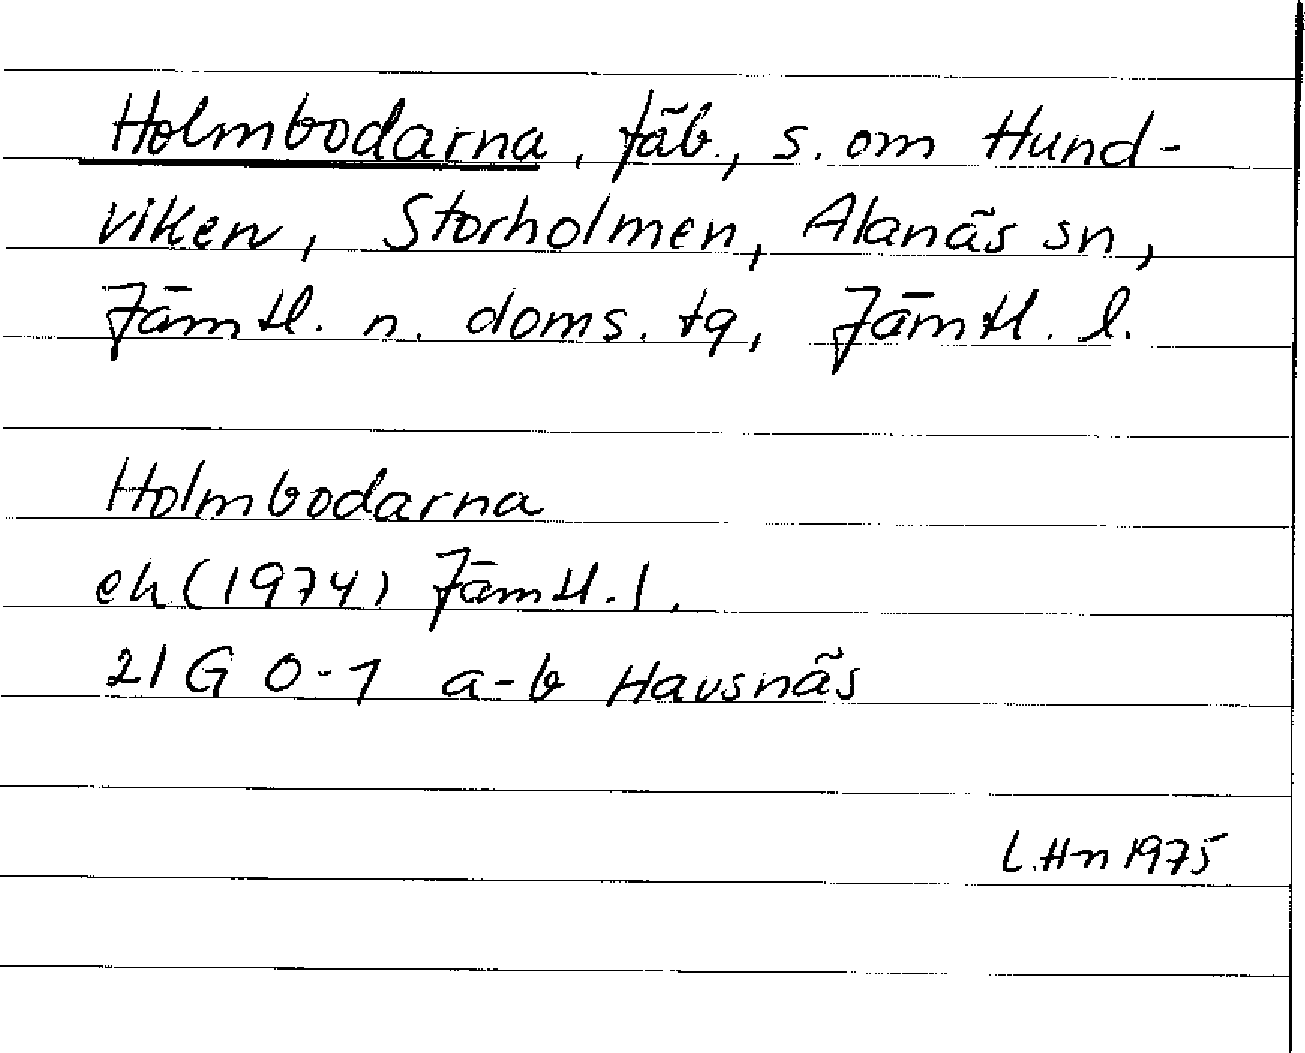 Holmbodarna, fäb., s. om Hund-
viken, Storholmen, Alanäs sn,
Jämtl. n. doms. tg, Jämtl. l.
Holmbodarna
ek (1974) Jämtl. l.
21 G 0-1 a-b Havsnäs
L.Hn 1975